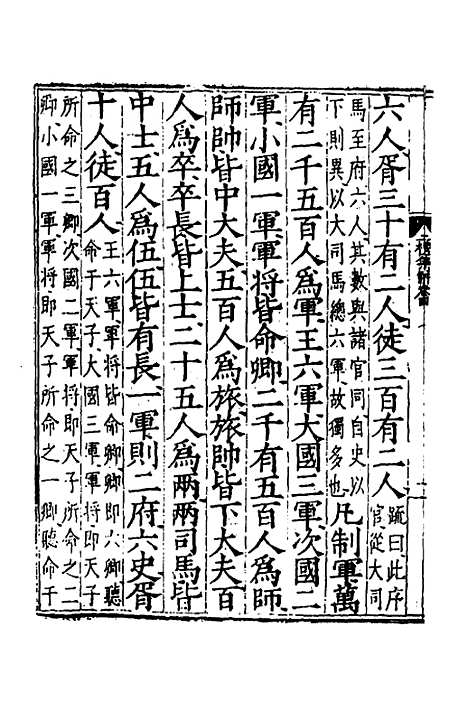 六人胥三十有二人徒三百有二人
疏曰此序
官從大司
馬至府六人其數與諸官同自史以
下則異以大司馬總六軍故獨多也
凡制軍萬
有二千五百人爲軍王六軍大國三軍次國二
軍小國一軍軍將皆命卿二千有五百人爲師
師帥皆中大夫五百人爲旅旅帥皆下大夫百
人爲卒卒長皆上士二十五人爲兩兩司馬皆
中士五人爲伍伍皆有長一軍則二府六史胥
十人徒百人
王六軍軍將皆命卿卿即六卿聽
命于天子大國三軍軍將即天子
所命之三卿次國二軍軍將即天子所命之二
卿小國一軍軍將即天子所命之一卿聽命于